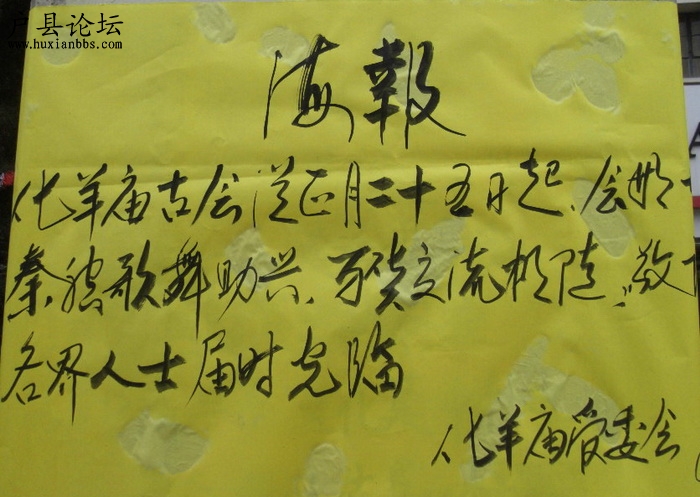 户县论坛
www.huxianbbs.com
海報
化羊庙古会从正月二十五日起、会期
秦腔歌舞助兴、百货交流相随、敬
各界人士届时光临
化羊庙管委会